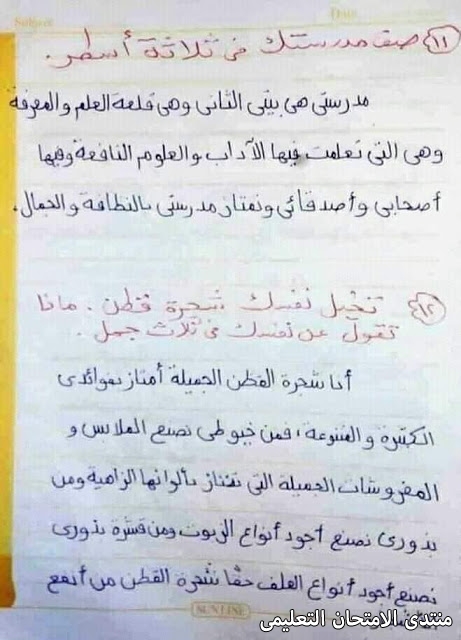 Subject
Date
(١١ صف مدرستك فى ثلاثة أسطر.
مدرستى هى بيتى الثانى وهى قلعة العلم والمعرفة
وهى التى تعلمت فيها الآداب والعلوم النافعة وفيها
أصحابى وأصدقائى وتمتاز مدرستى بالنظافة والجمال.
(١٢ تخيل نفسك شجرة قطن. ماذا
تقول عن نفسك فى ثلاث جمل.
أنا شجرة القطن الجميلة أمتاز بفوائدى
الكثيرة والمتنوعة، فمن خيوطى تصنع الملابس و
المفروشات الجميلة التى تمتاز بألوانها الزاهية ومن
بذورى تصنع أجود أنواع الزيوت ومن قشرة بذورى
تصنع أجود أنواع العلف حقًا شجرة القطن من أنفع
SUNLINE
منتدى الامتحان التعليمى